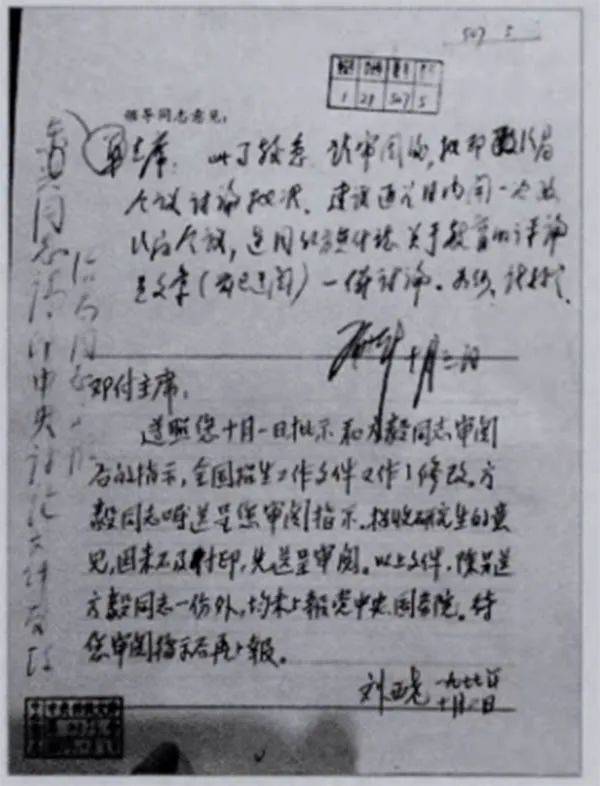 507 5
1 28 507 5
领导同志意见：
华主席：此事较急，请审阅后，批印政治局
会议讨论批准。建议近几日内开一次政
治局会议，连同红旗杂志关于教育的评论
员文章（前已送阅）一併讨论。
十月三日
东兴同志请印中央讨论文件发政
治局同志
邓付主席：
遵照您十月一日批示和方毅同志审阅
后的指示，全国招生工作文件又作了修改。方
毅同志嘱送呈您审阅指示。招收研究生的意
见，因来不及付印，先送呈审阅。以上文件，除另送
方毅同志一份外，均未上报党中央、国务院。待
您审阅指示后再上报。
刘西尧 一九七七年
十月 日